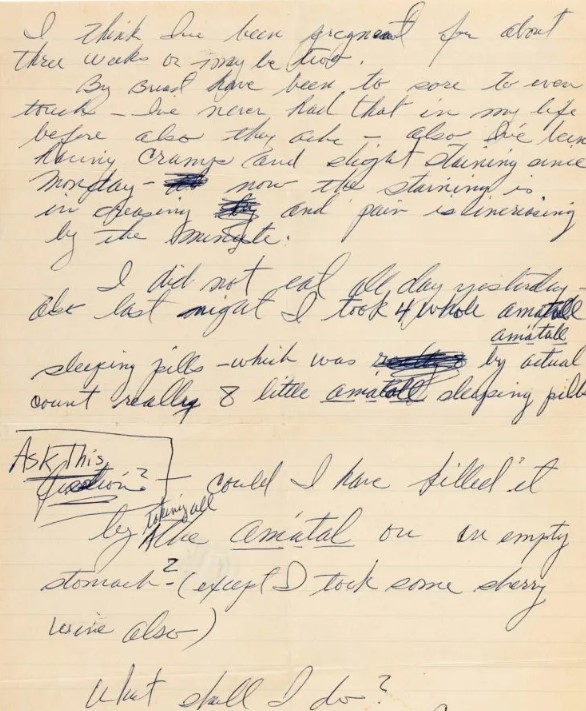 I think I've been pregnant for about
three weeks or may be two.
My Breast have been to sore to even
touch - I've never had that in my life
before also they ache - also I've been
having cramps and slight staining since
Monday - now the staining is
in creasing and pain is increasing
by the minute.
I did not eat all day yesterday -
also last night I took 4 whole amatall
amatall
sleeping pills - which was by actual
count really 8 little amatall sleeping pills
Ask This
Question?
- could I have killed it
by taking all the amatal on an empty
stomach? (except I took some sherry
wine also)
What shall I do?